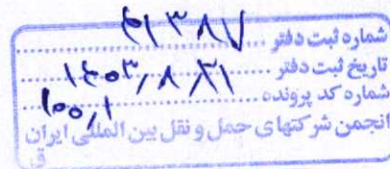 شماره ثبت دفتر ۴۱۳۸۷
تاریخ ثبت دفتر ۱۴۰۳/۸/۲۱
شماره کد پرونده ۱۰۰/۱
انجمن شرکتهای حمل و نقل بین المللی ایران
ق